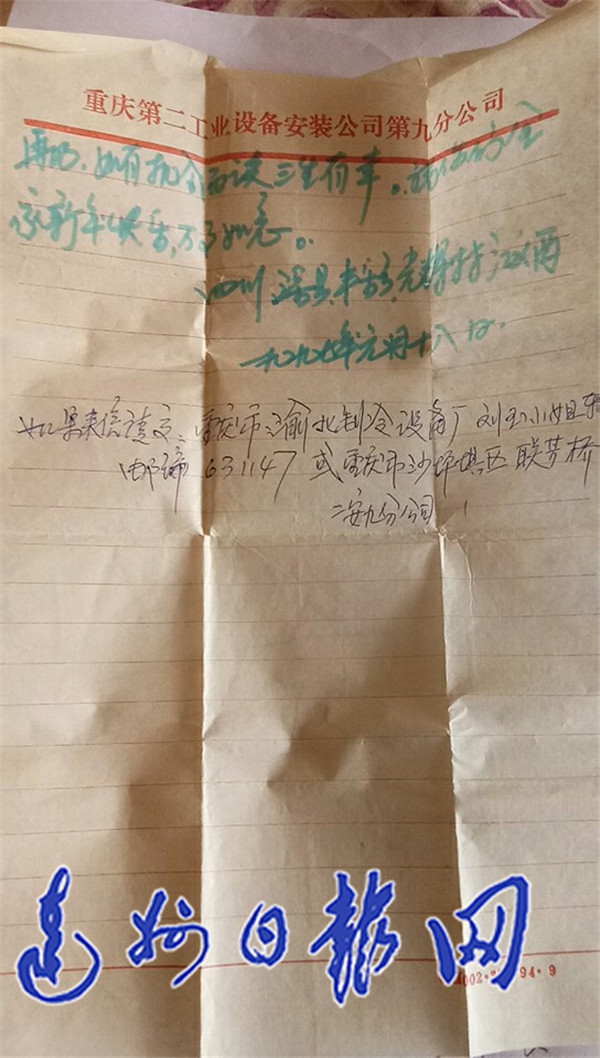 重庆第二工业设备安装公司第九分公司
再的，如有机会面谈三生有幸。祝您的全
家新年快乐，万事如意。
四川渠县丰乐
一九九七年元月十八日.
如果来信请交：重庆市渝北制冷设备厂刘玉小姐转
邮编 631147 或重庆市沙坪坝区联芳桥
二安九分公司！
94·9
达州日报网